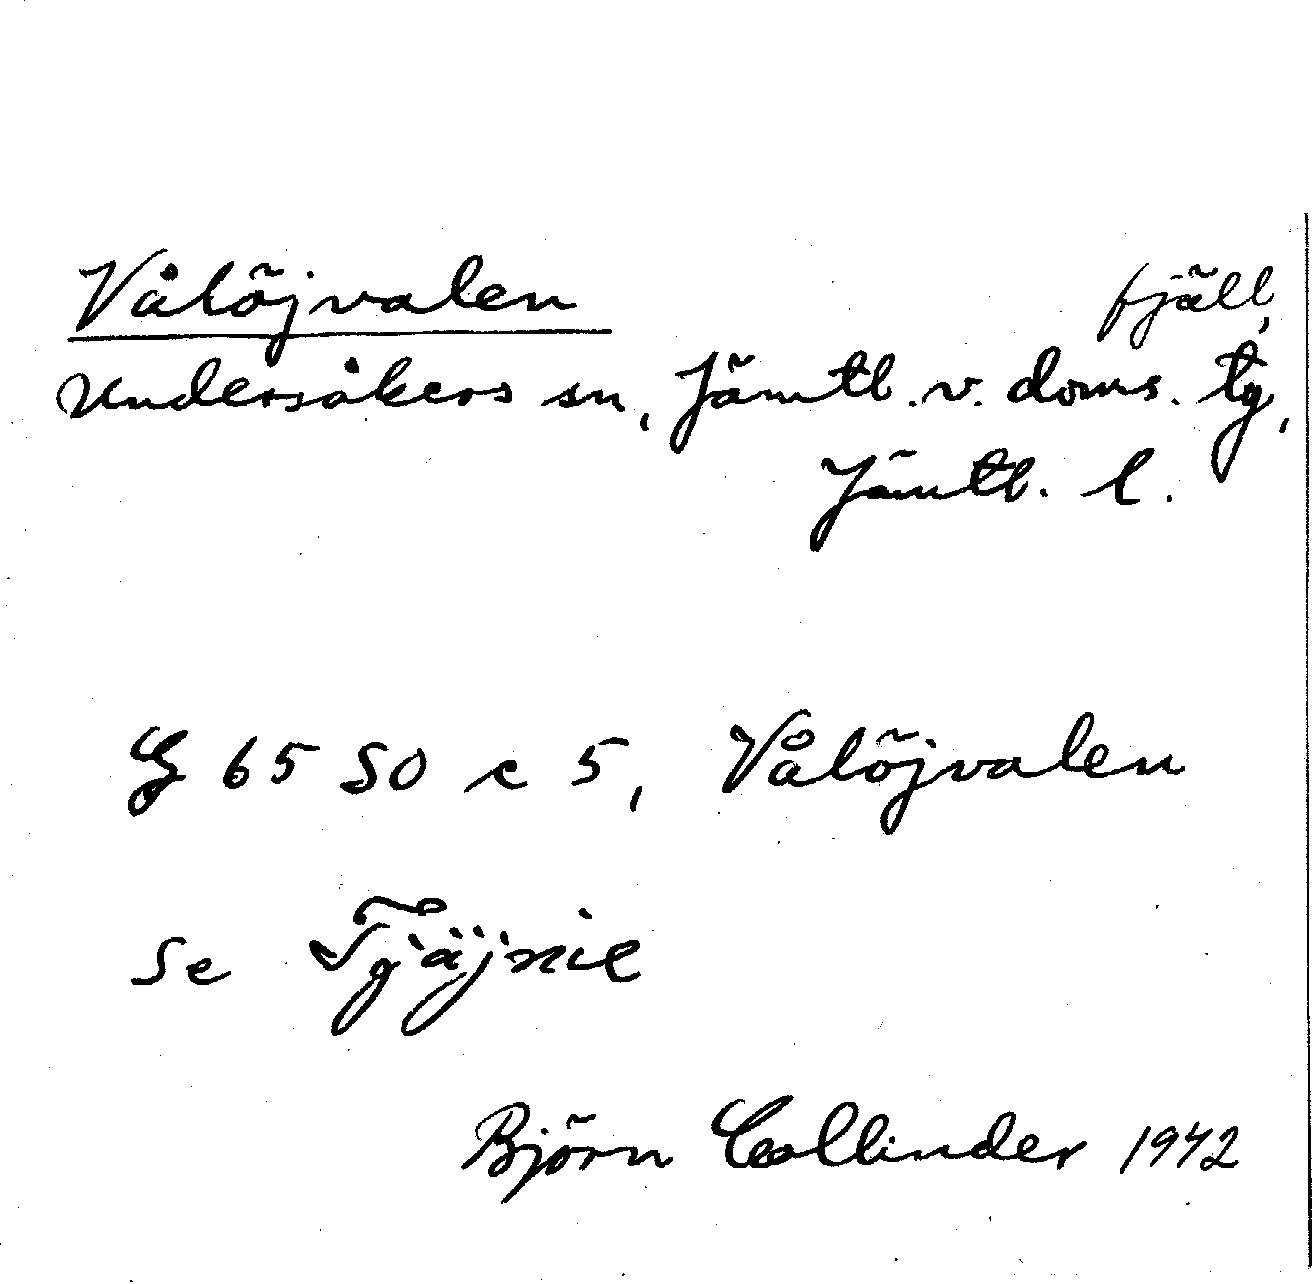 Vålöjvalen fjäll,
Undersåkers sn, Jämtl. v. doms. tg,
Jämtl. l.
G 65 50 c 5, Vålöjvalen
Se
Björn Collinder 1942